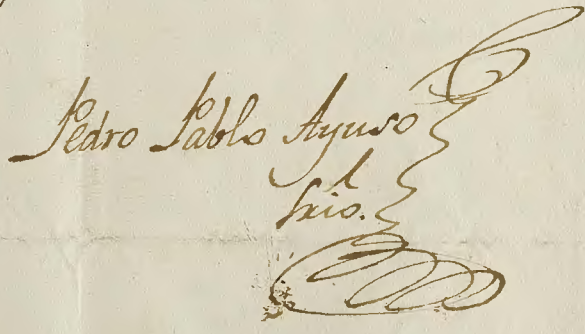 Pedro Pablo Ayuso
Srio.